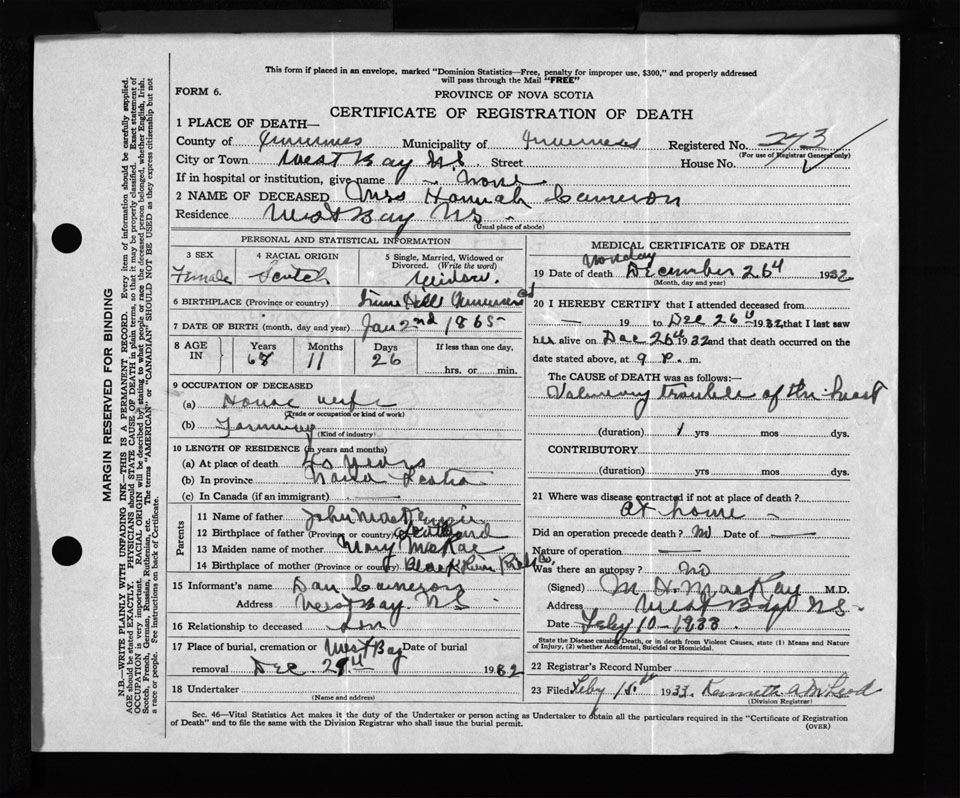 This form if placed in an envelope, marked "Dominion Statistics—Free, penalty for improper use, $300," and properly addressed
will pass through the Mail "FREE"
FORM 6.
PROVINCE OF NOVA SCOTIA
CERTIFICATE OF REGISTRATION OF DEATH
1 PLACE OF DEATH—
County of Inverness Municipality of Inverness Registered No. 273
(For use of Registrar General only)
City or Town West Bay N.S. Street House No.
If in hospital or institution, give name none
2 NAME OF DECEASED Mrs Hannah Cameron
Residence West Bay NS
(Usual place of abode)
PERSONAL AND STATISTICAL INFORMATION
3 SEX Female
4 RACIAL ORIGIN Scotch
5 Single, Married, Widowed or Divorced. (Write the word) Widow.
6 BIRTHPLACE (Province or country)
7 DATE OF BIRTH (month, day and year) Jan 2nd 1865
8 AGE IN Years Months Days If less than one day,
11 26 hrs. or min.
9 OCCUPATION OF DECEASED
(a) House wife
(Trade or occupation or kind of work)
(b) Farming
(Kind of industry)
10 LENGTH OF RESIDENCE (in years and months)
(a) At place of death years
(b) In province Nova Scotia
(c) In Canada (if an immigrant)
Parents
11 Name of father John
12 Birthplace of father (Province or country) Scotland
13 Maiden name of mother Mary McRae
14 Birthplace of mother (Province or country) River
15 Informant's name Dan Cameron
Address West Bay NS
16 Relationship to deceased Son
17 Place of burial, cremation or removal West Bay Date of burial
Dec 1932
18 Undertaker
(Name and address)
MEDICAL CERTIFICATE OF DEATH
Monday
19 Date of death December 26th 1932
(Month, day and year)
20 I HEREBY CERTIFY that I attended deceased from
19 to Dec 26th 1932 that I last saw
her alive on Dec 26th 1932 and that death occurred on the
date stated above, at 9 P. m.
The CAUSE OF DEATH was as follows:—
trouble of the heart
(duration) 1 yrs mos dys.
CONTRIBUTORY
(duration) yrs mos dys.
21 Where was disease contracted if not at place of death?
at home
Did an operation precede death? no Date of
Nature of operation
Was there an autopsy? no
(Signed) M. D. MacKay M.D.
Address West Bay N.S.
Date Feby 10 1933
State the Disease causing Death, or in death from Violent Causes, state (1) Means and Nature
of Injury, (2) whether Accidental, Suicidal or Homicidal.
22 Registrar's Record Number
23 Filed Feby 15th 1933. Kenneth A McLeod
(Division Registrar)
Sec. 46—Vital Statistics Act makes it the duty of the Undertaker or person acting as Undertaker to obtain all the particulars required in the "Certificate of Registration
of Death" and to file the same with the Division Registrar who shall issue the burial permit.
(OVER)
MARGIN RESERVED FOR BINDING
N.B.—WRITE PLAINLY WITH UNFADING INK—THIS IS A PERMANENT RECORD. Every item of information should be carefully supplied.
AGE should be stated EXACTLY. PHYSICIANS should STATE CAUSE OF DEATH in plain terms, so that it may be properly classified. Exact statement of
OCCUPATION is very important. RACIAL ORIGIN will be described by stating to what people or race the deceased person belonged, whether English, Irish,
Scotch, French, German, Russian, Ruthenian, etc. The terms "AMERICAN" or "CANADIAN" SHOULD NOT BE USED as they express citizenship but not
a race or people. See instructions on back of Certificate.